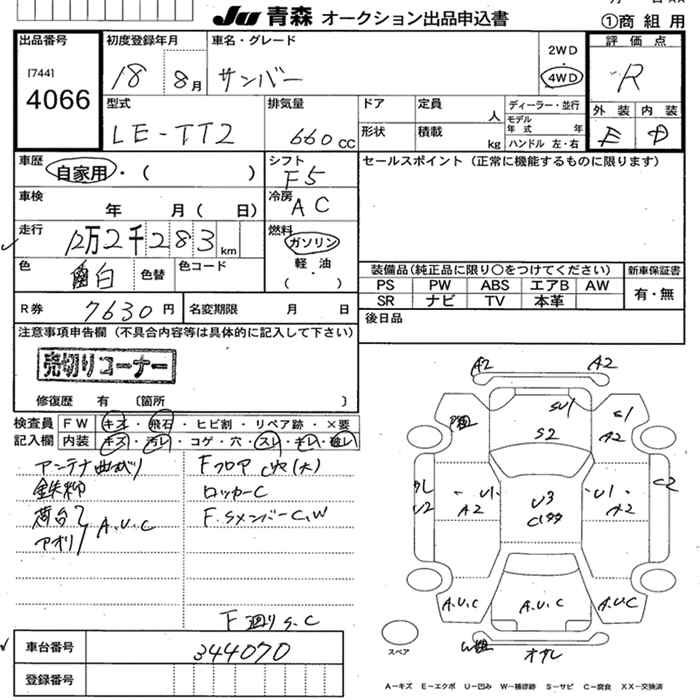 Ju 青森 オークション出品申込書
①商 組 用
出品番号
[744]
4066
初度登録年月
18 8月
車名・グレード
サンバー
2WD
・
4WD
評 価 点
R
型式
LE-TT2
排気量
660 CC
ドア
定員
人
形状
積載
kg
ディーラー・並行
モデル年式 年
ハンドル 左・右
外 装
内 装
E
D
車歴
自家用 ・( )
シフト
F5
セールスポイント(正常に機能するものに限ります)
車検
年 月( 日)
冷房
AC
走行
12万2千283 km
燃料
ガソリン
軽 油
( ・ )
色
白
色替
色コード
装備品(純正品に限り〇をつけてください)
新車保証書
PS PW ABS エアB AW
SR ナビ TV 本革
有・無
R券
7630円
名変期限 月 日
後日品
注意事項申告欄(不具合内容等は具体的に記入して下さい)
売切りコーナー
修復歴 有 〔箇所 〕
検査員記入欄
FW キズ ・ 飛石 ・ ヒビ割 ・ リペア跡 ・ ×要
内装 キズ ・ 汚レ ・ コゲ ・ 穴 ・ スレ ・ キレ ・
アンテナ曲がり
鉄粉
荷台
アオリ
A.U.C
Fフロア C穴(大)
ロッカーC
F.SメンバーC,W
F廻りS.C
A2
A2
SU1
S1
S2
U1
A2
U3
U1
A2
C2
U2
A.U.C
A.U.C
A.U.C
オオレ
スペア
車台番号
344070
登録番号
A−キズ E−エクボ U−凹み W−補修跡 S−サビ C−腐食 XX−交換済